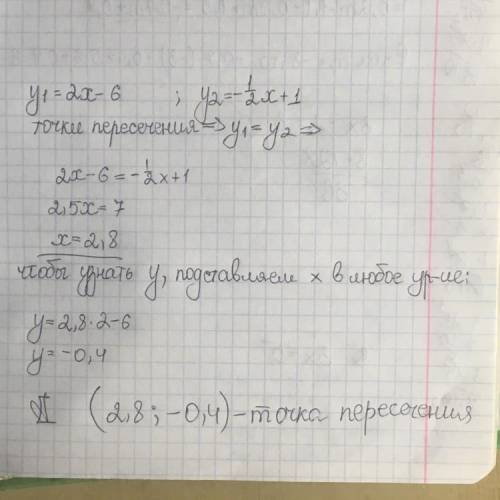 y₁=2x-6 ; y₂=-½x+1
точки пересечения => y₁=y₂ =>
2x-6=-½x+1
2,5x=7
x=2,8
чтобы узнать y, подставляем x в любое ур-ие:
y=2,8·2-6
y=-0,4
(2,8; -0,4)-точка пересечения